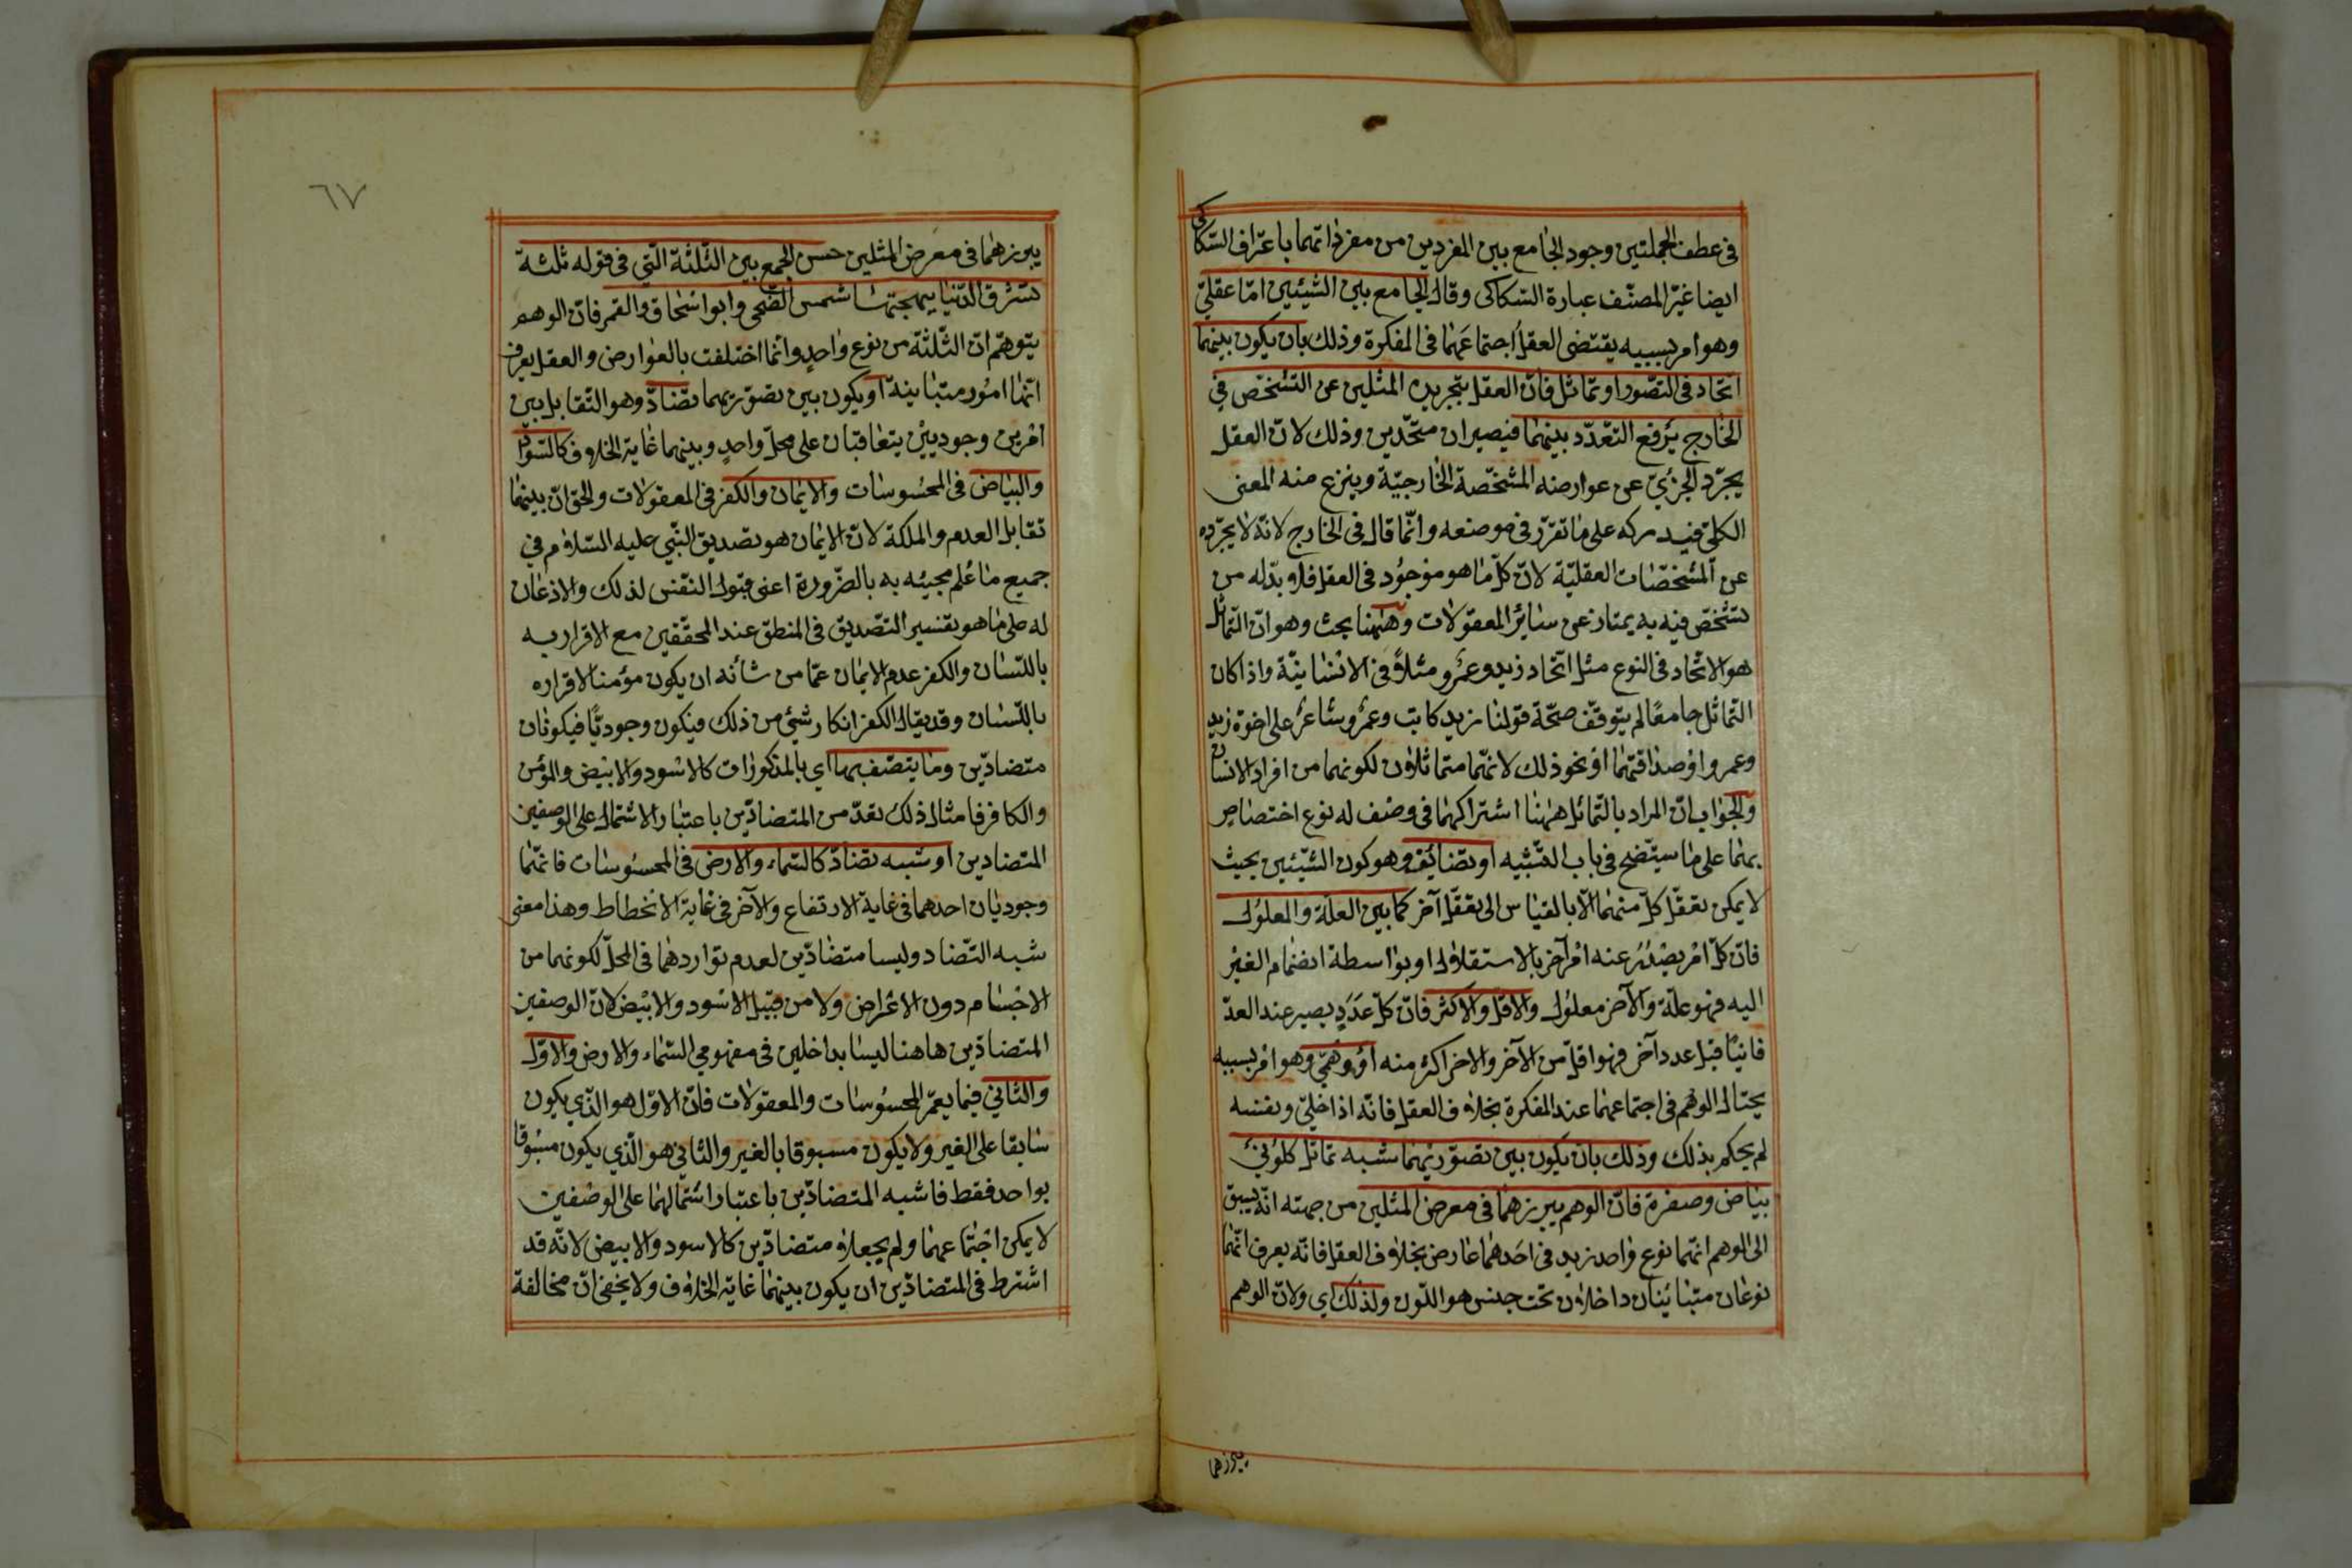 في عطف الجملتين وجود الجامع بين المفردين من مفرداتهما باعتراف السكاكي
ايضا غيّر المصنّف عبارة السّكاكى وقال الجامع بين الشيئين امّا عقليّ
وهو امر بسببه يقتضى العقل اجتماعهما فى المفكرة وذلك بان يكون بينهما
اتّحاد فى التصّور او تماثل فانّ العقل بتجريده المثلين عن التشخّص في
الخارج يرفع التعدّد بينهما فيصيران متّحدين وذلك لانّ العقل
يجرّد الجزئيّ عن عوارضه المشخّصة الخارجيّة وينزع منه المعنى
الكلّي فيدركه على ما تقرّر فى موضعه وانّما قال فى الخارج لانّه لا يجرّده
عن المشخّصات العقليّة لانّ كلّ ما هو موجود فى العقل فلا بدّ له من
تشخّص فيه به يمتاز عن سائر المعقولات وههنا بحث وهو انّ التماثل
هو الاتّحاد فى النوع مثل اتّحاد زيد وعمرو مثلاً فى الانسانيّة واذا كان
التماثل جامعًا لم يتوقّف صحّة قولنا زيد كاتب وعمرو شاعر على اخوّة زيد
وعمرو او صداقتهما او نحو ذلك لانهّما متماثلان لكونهما من افراد الانسان
والجواب انّ المراد بالتّماثل ههنا اشتراكهما فى وصف له نوع اختصاص
بهما على ما سيتّضح فى باب التّشبيه او تضائف وهو كون الشّيئين بحيث
لا يمكن تعقّل كلّ منهما الّا بالقياس الى تعقّل آخر كما بين العلّة والمعلول
فانّ كلّ امر يصدر عنه امر آخر بالاستقلال او بواسطة انضمام الغير
اليه فهو علّة والآخر معلول والاقلّ والاكثر فانّ كلّ عدد يصير عند العدّ
فانيًا قبل عدد آخر فهو اقلّ من الآخر والاخر اكثر منه او وهميّ وهو امر بسببه
يحتال الوهم فى اجتماعهما عند المفكرة بخلاف العقل فانّه اذا خلّي ونفسه
لم يحكم بذلك وذلك بان يكون بين تصوّريهما شبه تماثل كلونيْ
بياض وصفرة فانّ الوهم يبرزهما فى معرض المثلين من جهته انّه يسبق
الى الوهم انّهما نوع واحد زيد فى احدهما عارض بخلاف العقل فانّه يعرف انّهما
نوعان متبائنان داخلان تحت جنس هو اللّون ولذلك اي ولانّ الوهم
يبرزهما
٦٧
يبرزهما فى معرض المثلين حسن الجمع بين الثّلثة الّتي فى قوله ثلثة
تشرق الدّنيا ببهجتها شمس الضّحى وابو اسحاق والقمر فانّ الوهم
يتوهّم انّ الثّلثة من نوع واحد وانّما اختلفت بالعوارض والعقل يعرف
انّها امور متباينة او يكون بين تصوّريهما تضّادّ وهو التّقابل بين
امرين وجوديين يتعاقبان على محلّ واحد وبينهما غاية الخلاف كالسّواد
والبياض فى المحسوسات والايمان والكفر فى المعقولات والحقّ انّ بينهما
تقابل العدم والملكة لانّ الايمان هو تصديق النّبي عليه السّلام في
جميع ما عُلم مجيئه به بالضّرورة اعنى قبول النّفس لذلك والاذعان
له على ما هو تفسير التّصديق فى المنطق عند المحقّقين مع الاقرار به
باللّسان والكفر عدم الايمان عمّا من شأنه ان يكون مؤمنا لاقراره
باللّسان وقد يقال الكفر انكار شيئ من ذلك فيكون وجوديًّا فيكونان
متضادّين وما يتّصف بها اي بالمذكورات كالاسود والابيض والمؤمن
والكافر فامثال ذلك تعدّ من المتضادّين باعتبار الاشتمال على الوصفين
المتضادين او شبه تضادّ كالسّماء والارض فى المحسوسات فانّهما
وجوديان احدهما فى غاية الارتفاع والآخر فى غاية الانحطاط وهذا معنى
شبه التّضاد وليسا متضادّين لعدم تواردهما فى المحلّ لكونهما من
الاجسام دون الاعراض ولا من قبيل الاسود والابيض لانّ الوصفين
المتضادّين هاهنا ليسا بداخلين فى مفهومي السّماء والارض والاوّل
والثّاني فيما يعمّ المحسوسات والمعقولات فانّ الاوّل هو الّذي يكون
سابقا على الغير ولا يكون مسبوقا بالغير والثّاني هو الّذي يكون مسبوقا
بواحد فقط فاشبه المتضادّين باعتبار اشتمالهما على الوصفين
لا يمكن اجتماعهما ولم يجعلا متضادّين كالاسود والابيض لانّه قد
اشترط فى المتضادّين ان يكون بينهما غاية الخلاف ولا يخفى انّ مخالفة